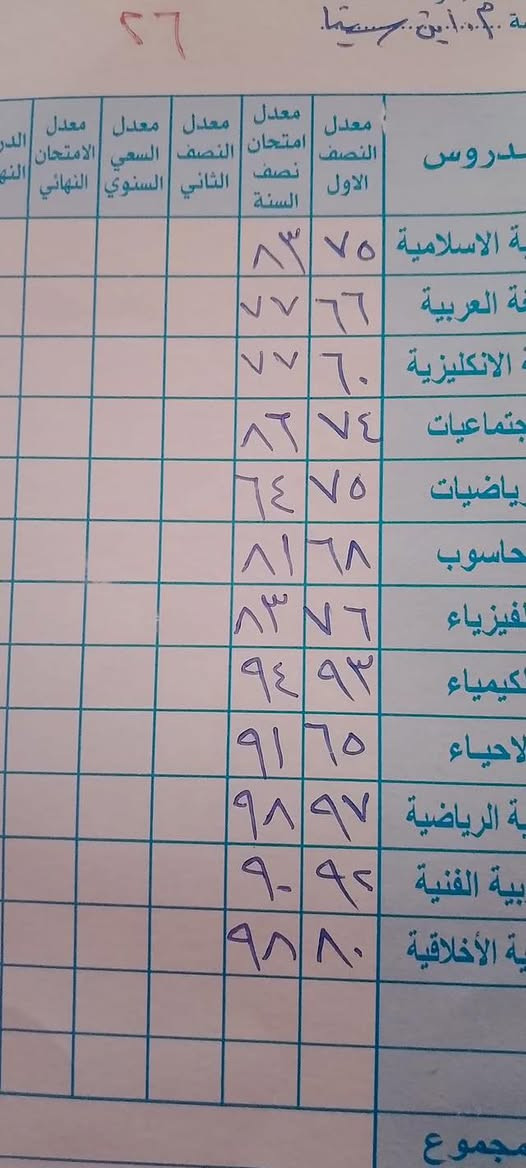 م. ابن سينا
٢٦
دروس معدل النصف الاول معدل امتحان نصف السنة معدل النصف الثاني معدل السعي السنوي معدل الامتحان النهائي
ة الاسلامية ٧٥ ٨٣
ة العربية ٦٦ ٧٧
الانكليزية ٦٠ ٧٧
جتماعيات ٧٤ ٨٦
ياضيات ٧٥ ٦٤
حاسوب ٦٨ ٨١
فيزياء ٧٦ ٨٣
كيمياء ٩٣ ٩٤
لاحياء ٦٥ ٩١
ة الرياضية ٩٧ ٩٨
بية الفنية ٩٢ ٩٠
ة الأخلاقية ٨٠ ٩٨
مجموع